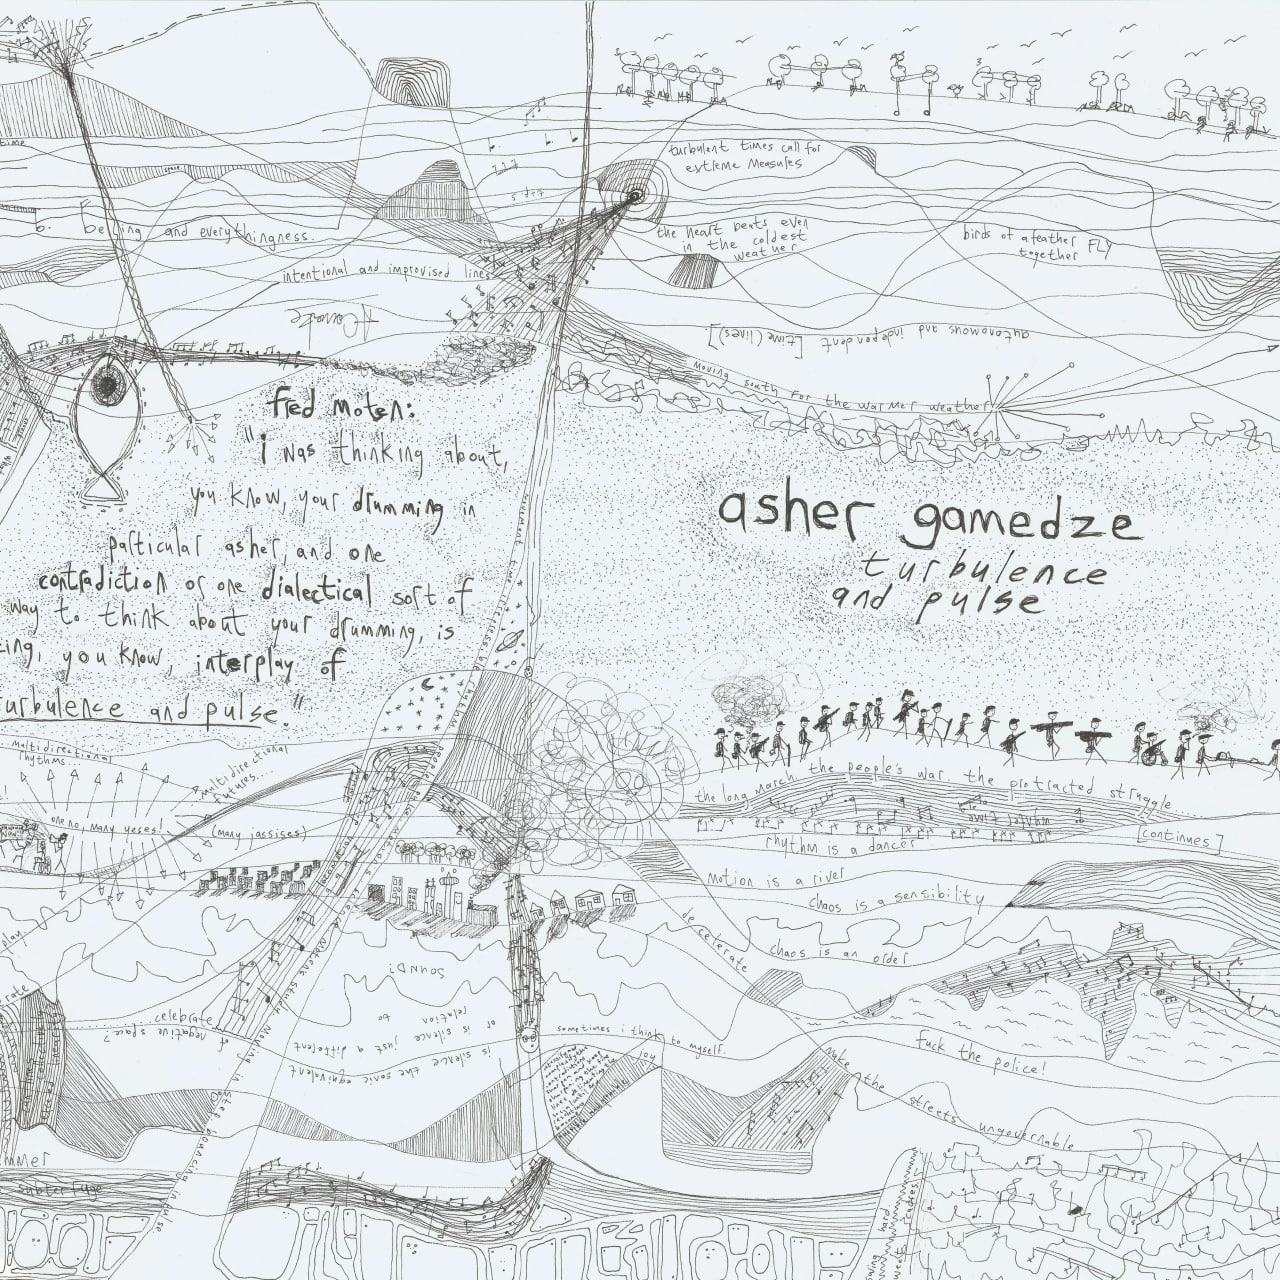 turbulent times call for
extreme measures
time
space
the heart beats even
in the coldest
weather
birds of a feather FLY
together
being and everythingness.
intentional and improvised lines
autonomous and independent [time(lines)]
moving south for the warmer weather
fred moten:
"i was thinking about,
you know, your drumming in
particular asher, and one
contradiction or one dialectical sort of
way to think about your drumming, is
you know, interplay of
turbulence and pulse."
asher gamedze
turbulence
and pulse
multidirectional
rhythms...
multidirectional
futures...
one no, many yeses!
(many jassises)
the long march, the people's war, the protracted struggle...
[continues]
rhythm is a dancer
motion is a river
chaos is a sensibility
decelerate
chaos is an order
play
SOUND!
celebrate
is silence the sonic equivalent
of negative space?
or is silence just a different
relation to
sometimes i think to myself.
joy
fuck the police!
make the streets ungovernable
subterfuge
swing hard